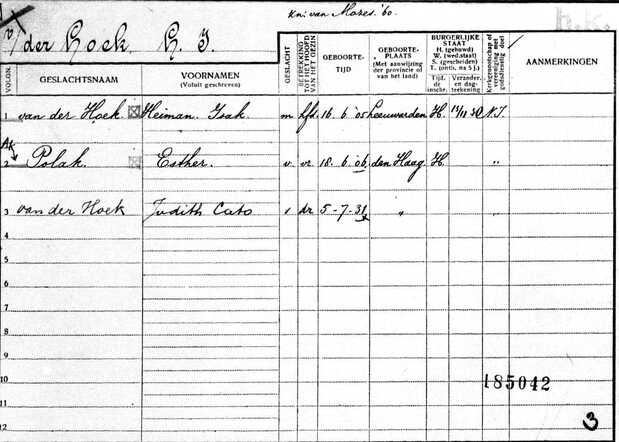 Kn: van Mozes. '60.
v/der Hoek H. I. h.k.
VOLGN. GESLACHTSNAAM VOORNAMEN (Voluit geschreven) GESLACHT BETREKKING TOT HET HOOFD VAN HET GEZIN GEBOORTE-TIJD GEBOORTE-PLAATS (Met aanwijzing der provincie of van het land) BURGERLIJKE STAAT H. (gehuwd) W. (wed.staat) S. (gescheiden) T. (ontb. na 5 j.) Tijd. de inschr. Verander. en dag-teekening Kerkgenootschap of vereeniging met godsdienstig doel AANMERKINGEN
1 van der Hoek. Heiman Isak m hfd. 16. 6 '05 Leeuwarden H. 30 N.I.
Ak
2 Polak. Esther. v. vr. 18. 6. 06. den Haag H. "
3 van der Hoek Judith Cato v dr 5-7-31 "
4
5
6
7
8
9
10 185042
11
12 3